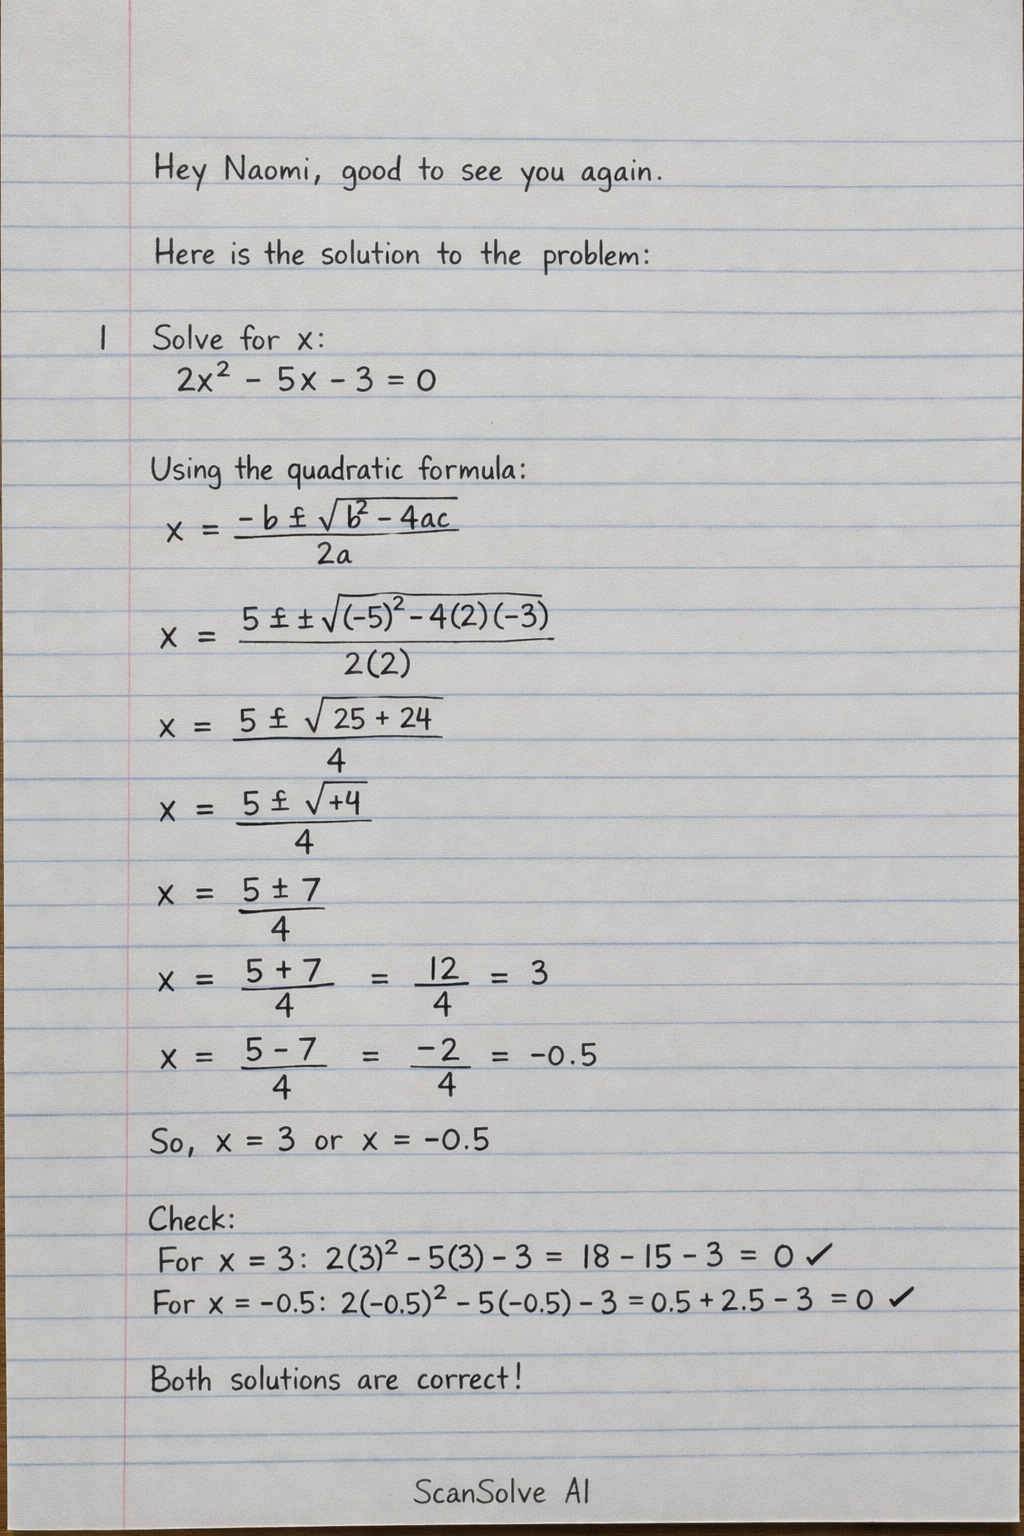 Hey Naomi, good to see you again.
Here is the solution to the problem:
1 Solve for x:
2x² - 5x - 3 = 0
Using the quadratic formula:
x = (-b £ √(b² - 4ac)) / 2a
x = (5 £ ± √((-5)² - 4(2)(-3))) / 2(2)
x = (5 £ √(25 + 24)) / 4
x = (5 £ √(+4)) / 4
x = (5 ± 7) / 4
x = (5 + 7) / 4 = 12 / 4 = 3
x = (5 - 7) / 4 = -2 / 4 = -0.5
So, x = 3 or x = -0.5
Check:
For x = 3: 2(3)² - 5(3) - 3 = 18 - 15 - 3 = 0 ✓
For x = -0.5: 2(-0.5)² - 5(-0.5) - 3 = 0.5 + 2.5 - 3 = 0 ✓
Both solutions are correct!
ScanSolve AI